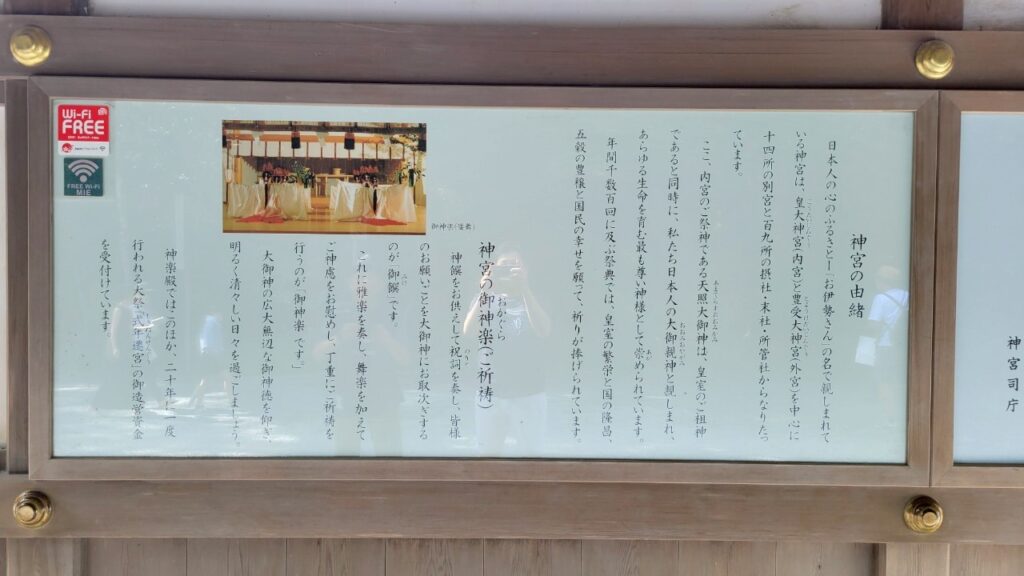 神宮の由緒
日本人の心のふるさとー「お伊勢さん」の名で親しまれて
いる神宮は、皇大神宮(内宮)と豊受大神宮(外宮)を中心に
十四所の別宮と百九所の摂社・末社・所管社からなりたっ
ています。
ここ、内宮のご祭神である天照大御神は、皇室のご祖神
であると同時に、私たち日本人の大御親神と親しまれ、
あらゆる生命を育む最も尊い神様として崇められています。
年間千数百回に及ぶ祭典では、皇室の繁栄と国の隆昌、
五穀の豊穣と国民の幸せを願って、祈りが捧げられています。
神宮の御神楽(ご祈祷)
おかぐら
神饌をお供えして祝詞を奏し、皆様
のお願いごとを大御神にお取次ぎする
のが「御饌」です。
これに雅楽を奏し、舞楽を加えて
ご神慮をお慰めし、丁重にご祈祷を
行うのが「御神楽」です。
大御神の広大無辺な御神徳を仰ぎ、
明るく清々しい日々を過ごしましょう。
神楽殿ではこのほか、二十年に一度
行われる大祭「式年遷宮」の御造営資金
を受付けています。
御神楽(倭舞)
Wi-Fi
FREE
FREE Wi-Fi
MIE
神宮司庁